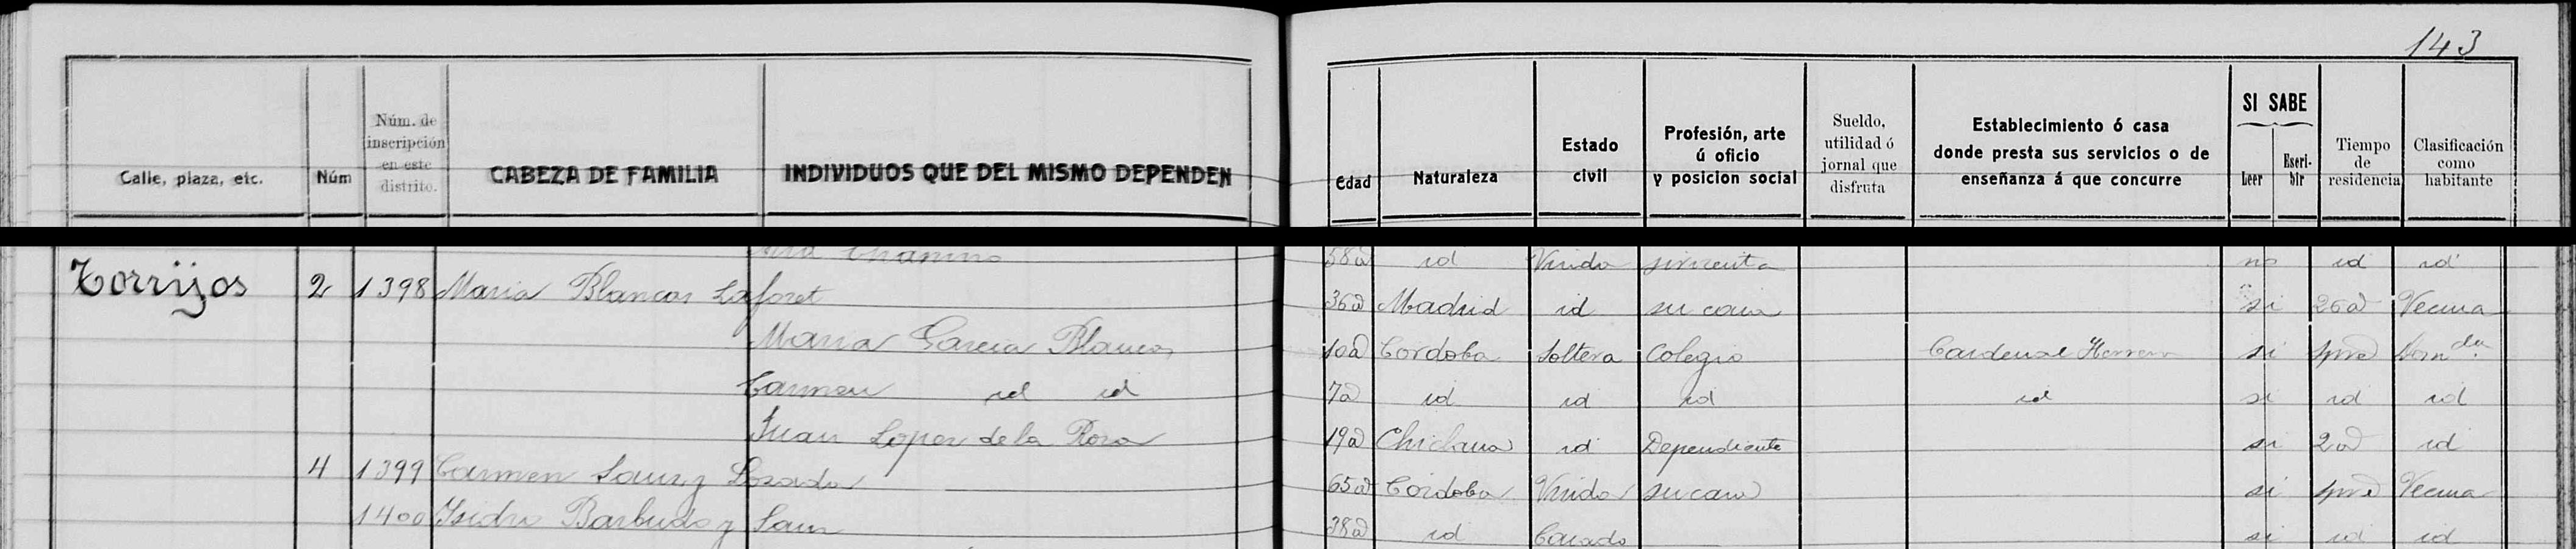 143
Calle, plaza, etc. Núm Núm. de inscripción en este distrito. CABEZA DE FAMILIA INDIVIDUOS QUE DEL MISMO DEPENDEN Edad Naturaleza Estado civil Profesión, arte ú oficio y posicion social Sueldo, utilidad ó jornal que disfruta Establecimiento ó casa donde presta sus servicios o de enseñanza á que concurre SI SABE Leer Escribir Tiempo de residencia Clasificación como habitante
58a id Viuda sirvienta no id id
Torrijos 2 1398 Maria Blancas Laforet 36a Madrid id su casa si 26a Vecina
Maria Garcia Blancas 10a Cordoba Soltera Colegio Cardenal Herrero si spre Domda
Carmen id id 7a id id id id si id id
Juan Lopez de la Rosa 19a Chiclana id Dependiente si 2a id
4 1399 Carmen Sanz y Losada 65a Cordoba Viuda su casa si spre Vecina
1400 Isidro Barbudo y Sanz 38a id Casado si id id